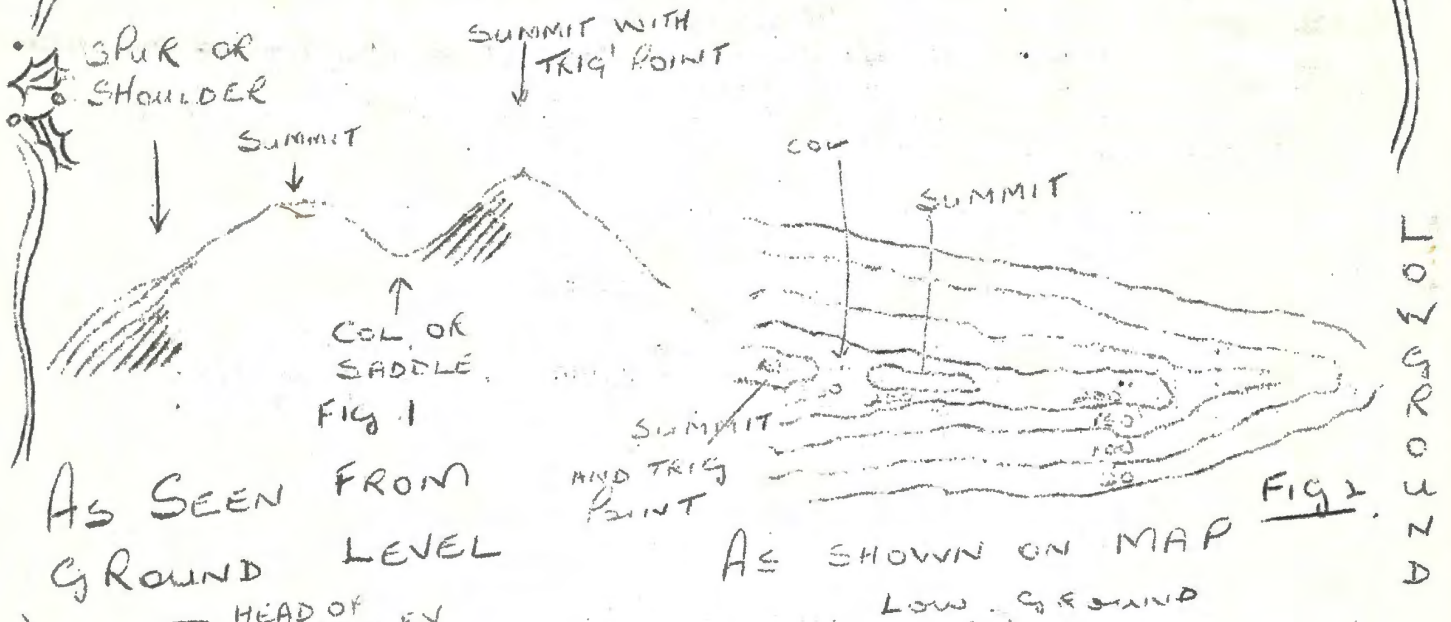 SPUR OR
SHOULDER
SUMMIT
SUMMIT WITH
TRIG POINT
COL OR
SADDLE.
FIG 1
AS SEEN FROM
GROUND LEVEL
COL
SUMMIT
SUMMIT
AND TRIG
POINT
200
150
100
50
FIG 2.
AS SHOWN ON MAP
LOW GROUND
LOW GROUND
HEAD OF